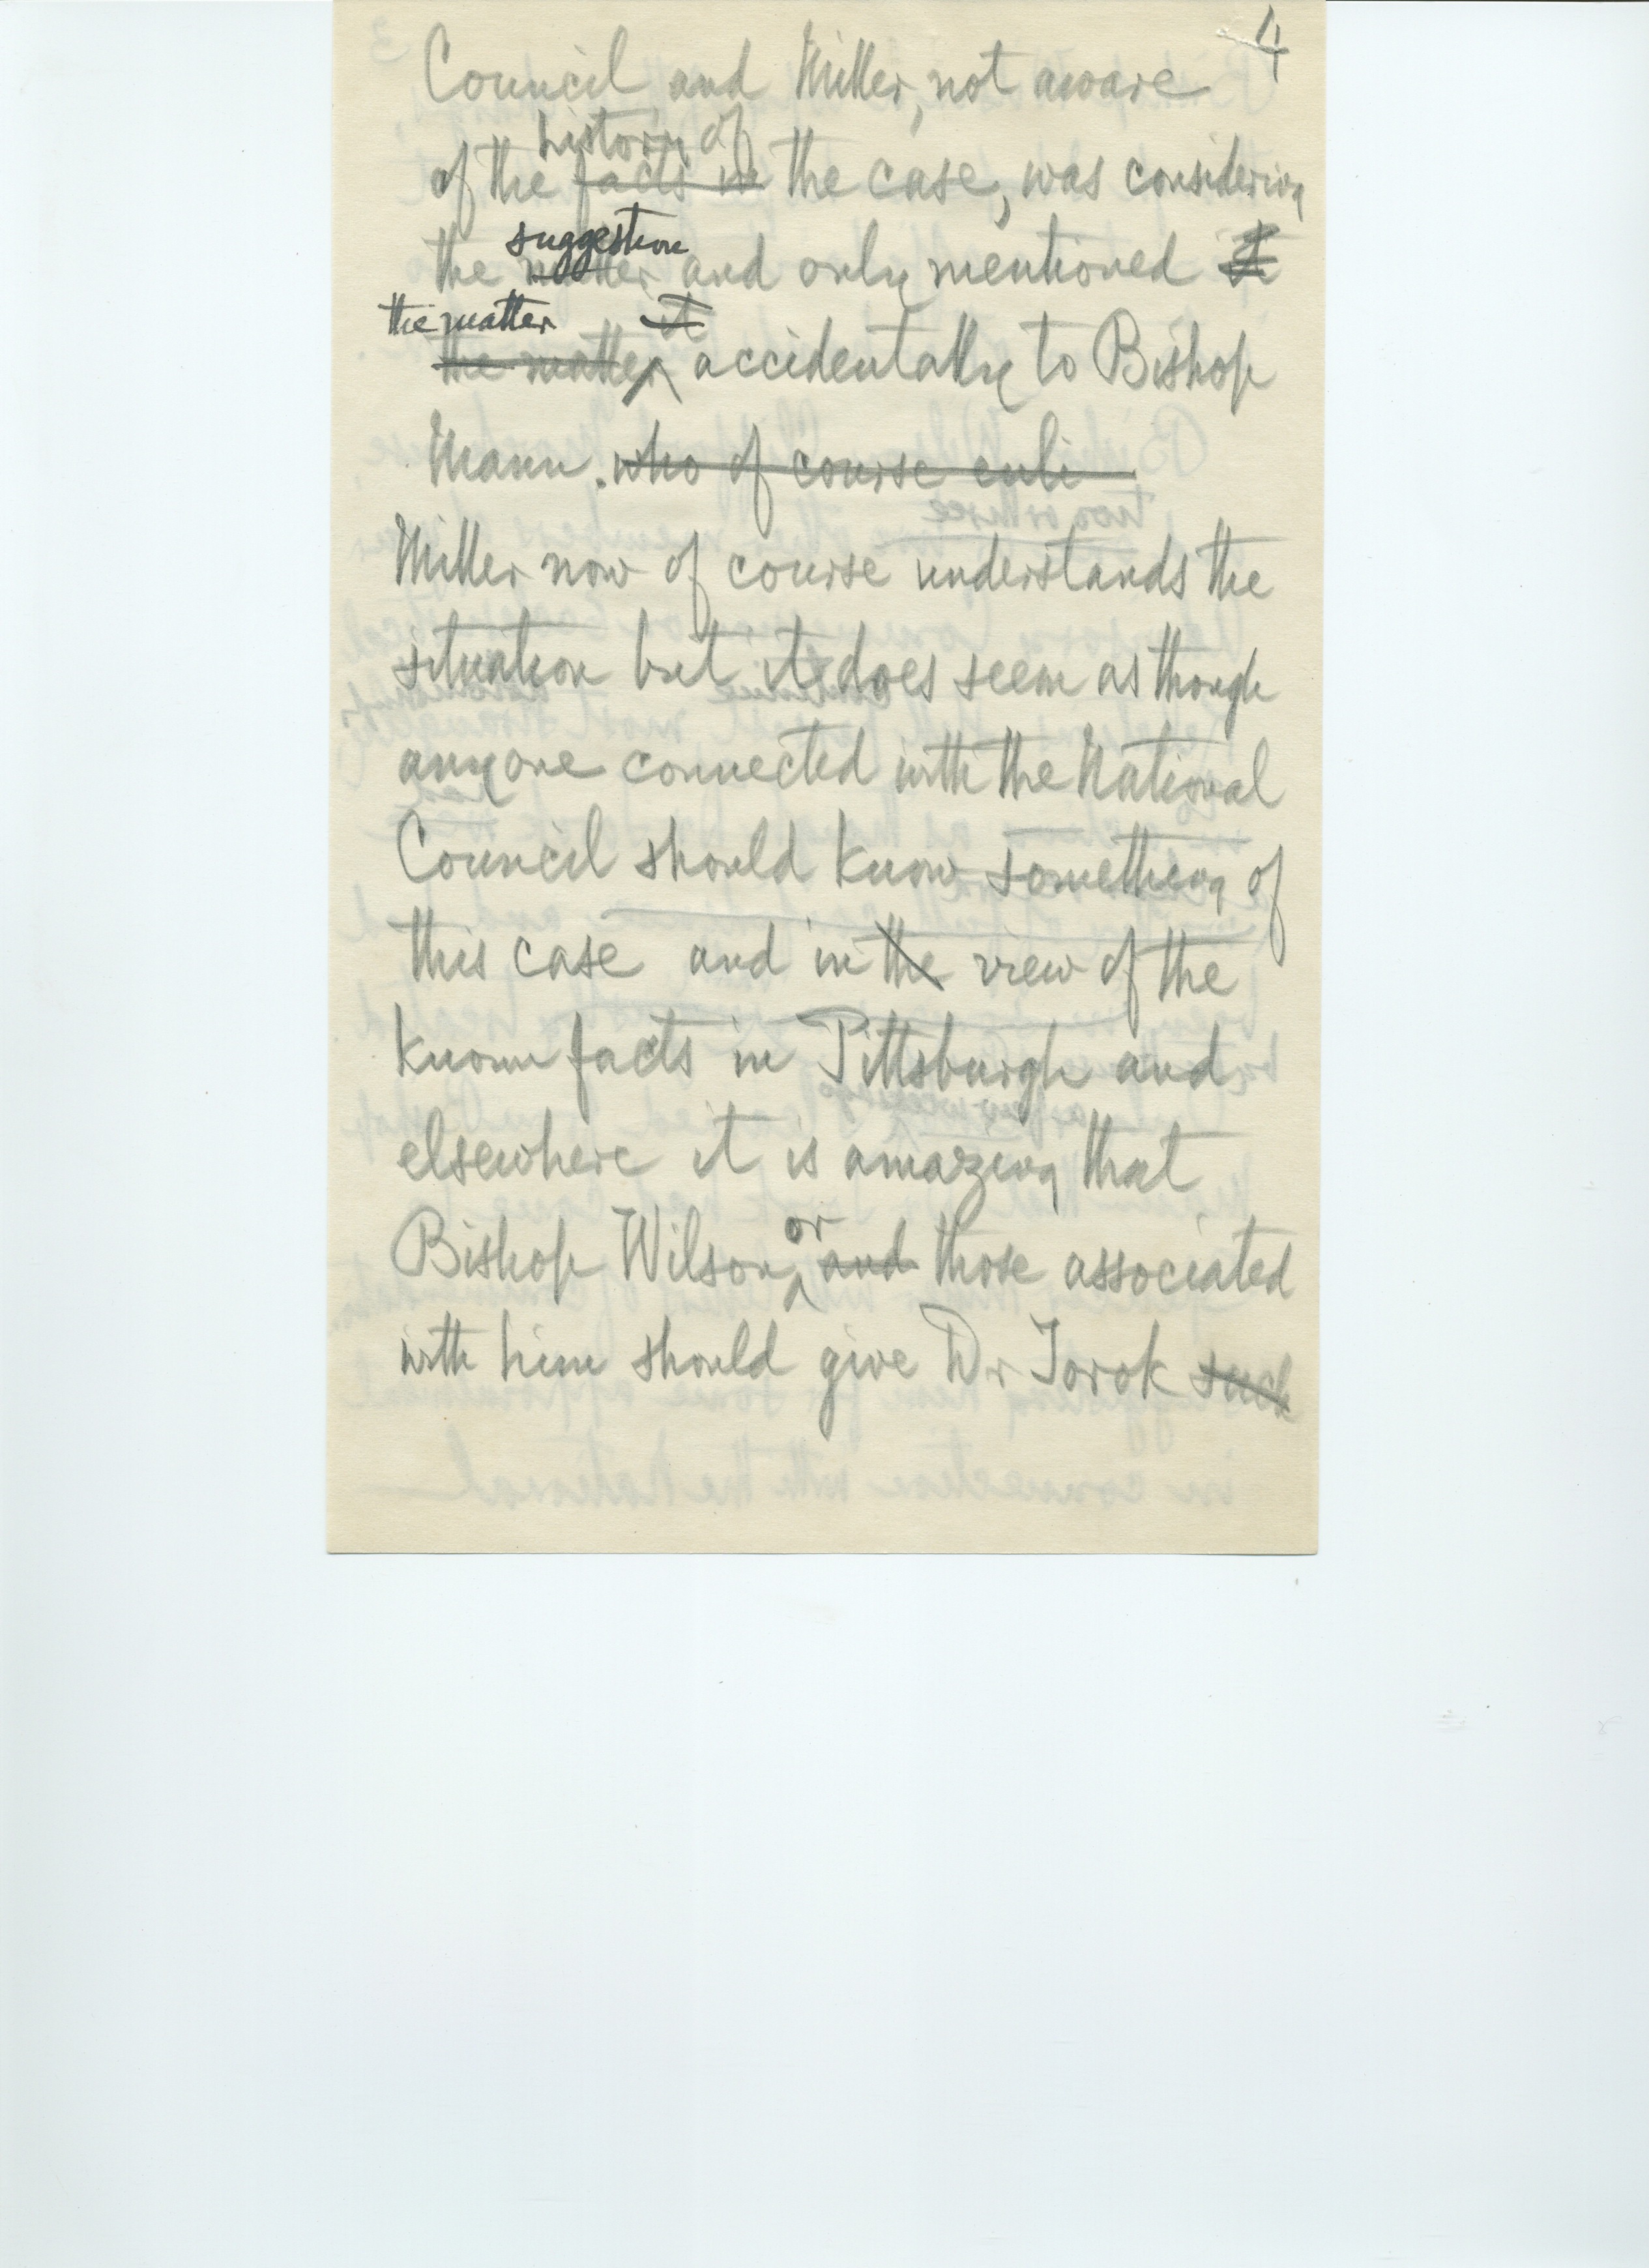 4
Council and Miller, not aware
history of
of the facts in the case, was considering
suggestion
the matter and only mentioned it
the matter it
the matter accidentally to Bishop
Mann. who of course enli
Miller now of course understands the
situation but it does seem as though
anyone connected with the National
Council should know something of
this case and in the view of the
known facts in Pittsburgh and
elsewhere it is amazing that
or
Bishop Wilson, and those associated
with him should give Dr Torok such